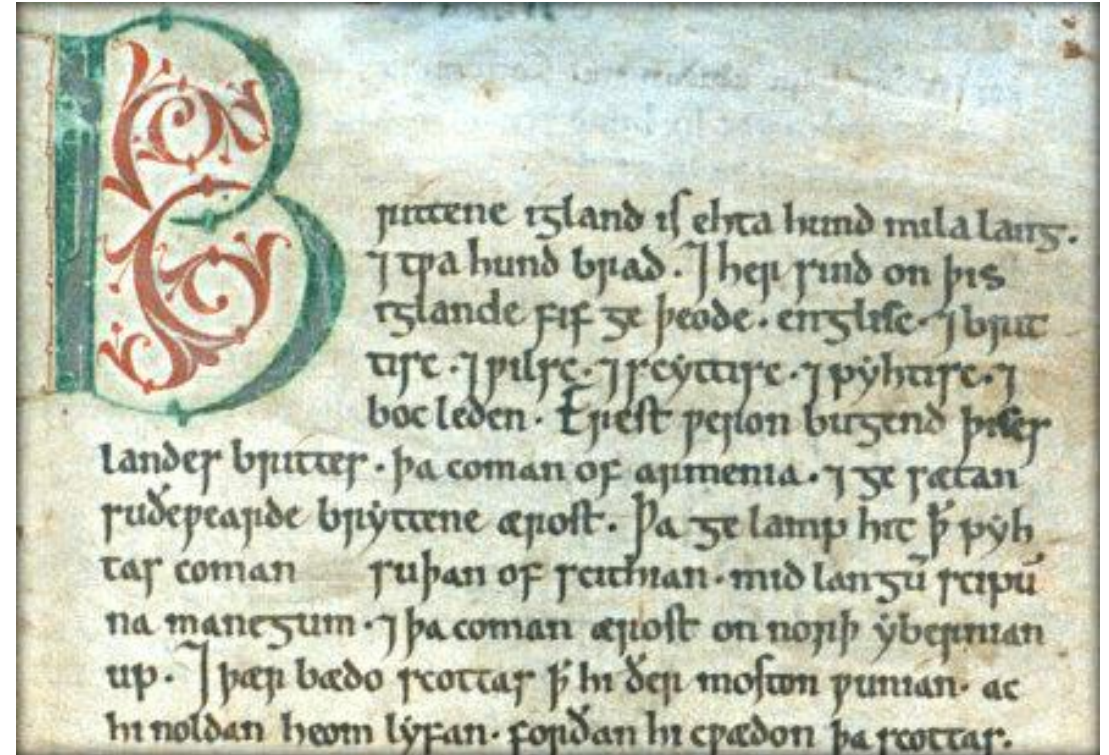 Brittene igland is ehta hund mila lang.
⁊ tƿa hund brad. ⁊ her sind on þis
iglande fif ge þeode. englisc. ⁊ brit
tisc. ⁊ ƿilsc. ⁊ scyttisc. ⁊ pyhtisc. ⁊
boc leden. Erest ƿeron bugend þises
landes brittes. þa coman of armenia. ⁊ ge sætan
suðeƿearde bryttene ærost. Þa ge lamp hit þꝥ pyh
tas coman suþan of scithian. mid langū scipū
na manegum. ⁊ þa coman ærost on norþ ybernian
up. ⁊ þær bædo scottas ꝥ hi ðer moston ƿunian. ac
hi noldan heom lyfan. forðan hi cƿædon þa scottas.